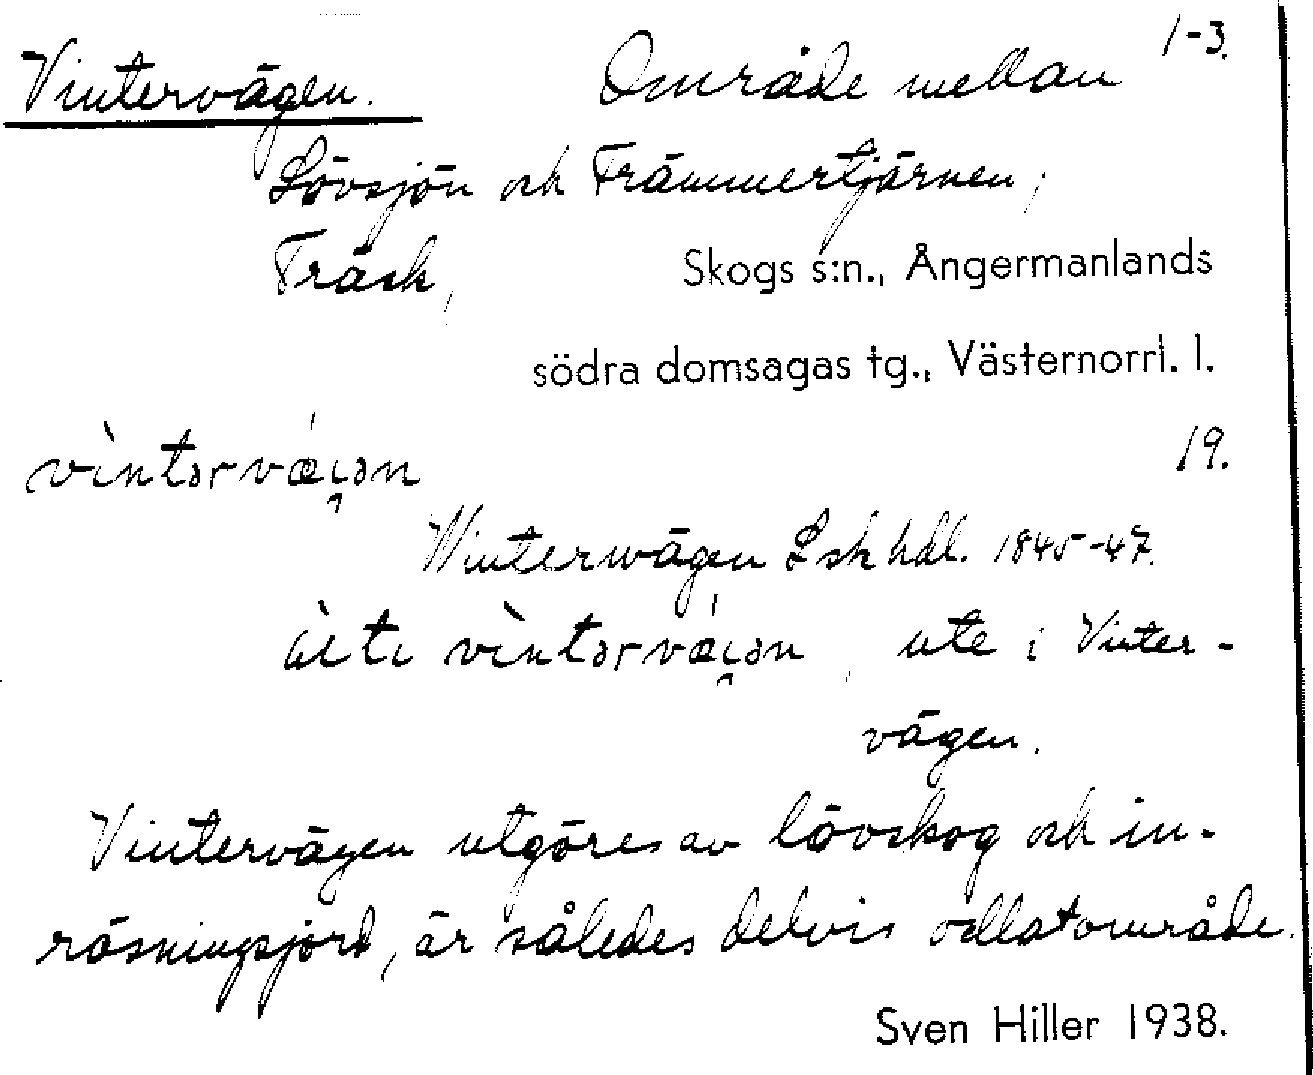 1-3.
Vintervägen. Område mellan
Lövsjön och Främmertjärnen,
Träsk, Skogs s:n., Ångermanlands
södra domsagas tg., Västernorrl. l.
19.
vìntərvǽ̣ɩən
Wintervägen Lsk hdl. 1845-47.
ʉ̀tɩ vìntərvǽ̣ɩən, ute i Vinter-
vägen.
Vintervägen utgöres av lövskog och in-
rösningsjord, är således delvis odlat område.
Sven Hiller 1938.